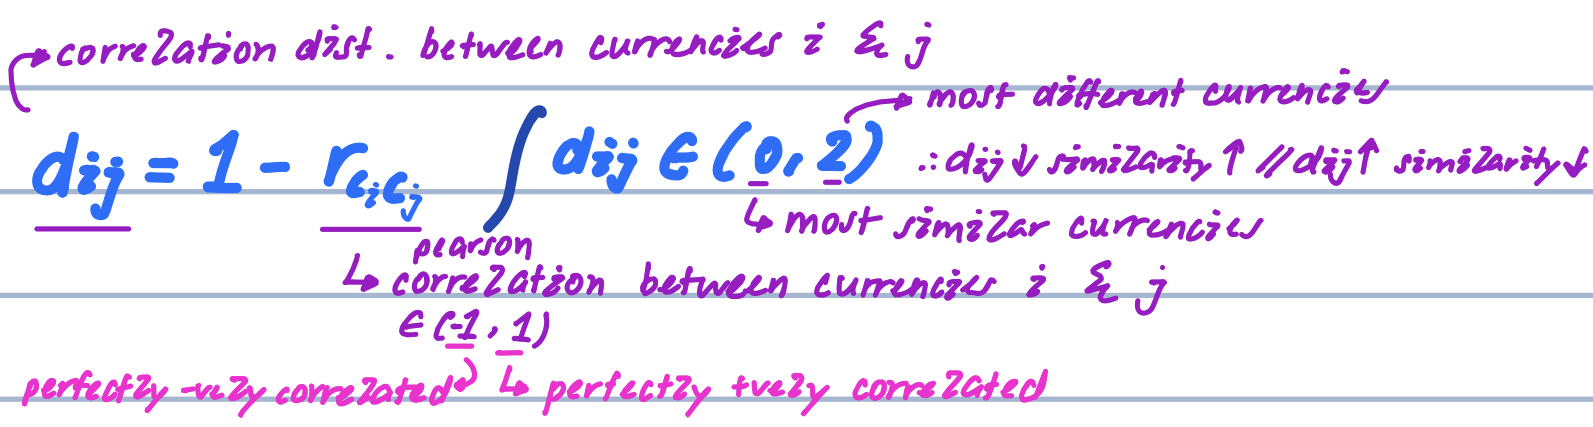 correlation dist. between currencies i & j
most different currencies
dij = 1 - rcicj ∫ dij ∈ (0, 2) ∴ dij ↓ similarity ↑ // dij ↑ similarity ↓
most similar currencies
pearson
correlation between currencies i & j
∈ (-1, 1)
perfectly -vely correlated perfectly +vely correlated